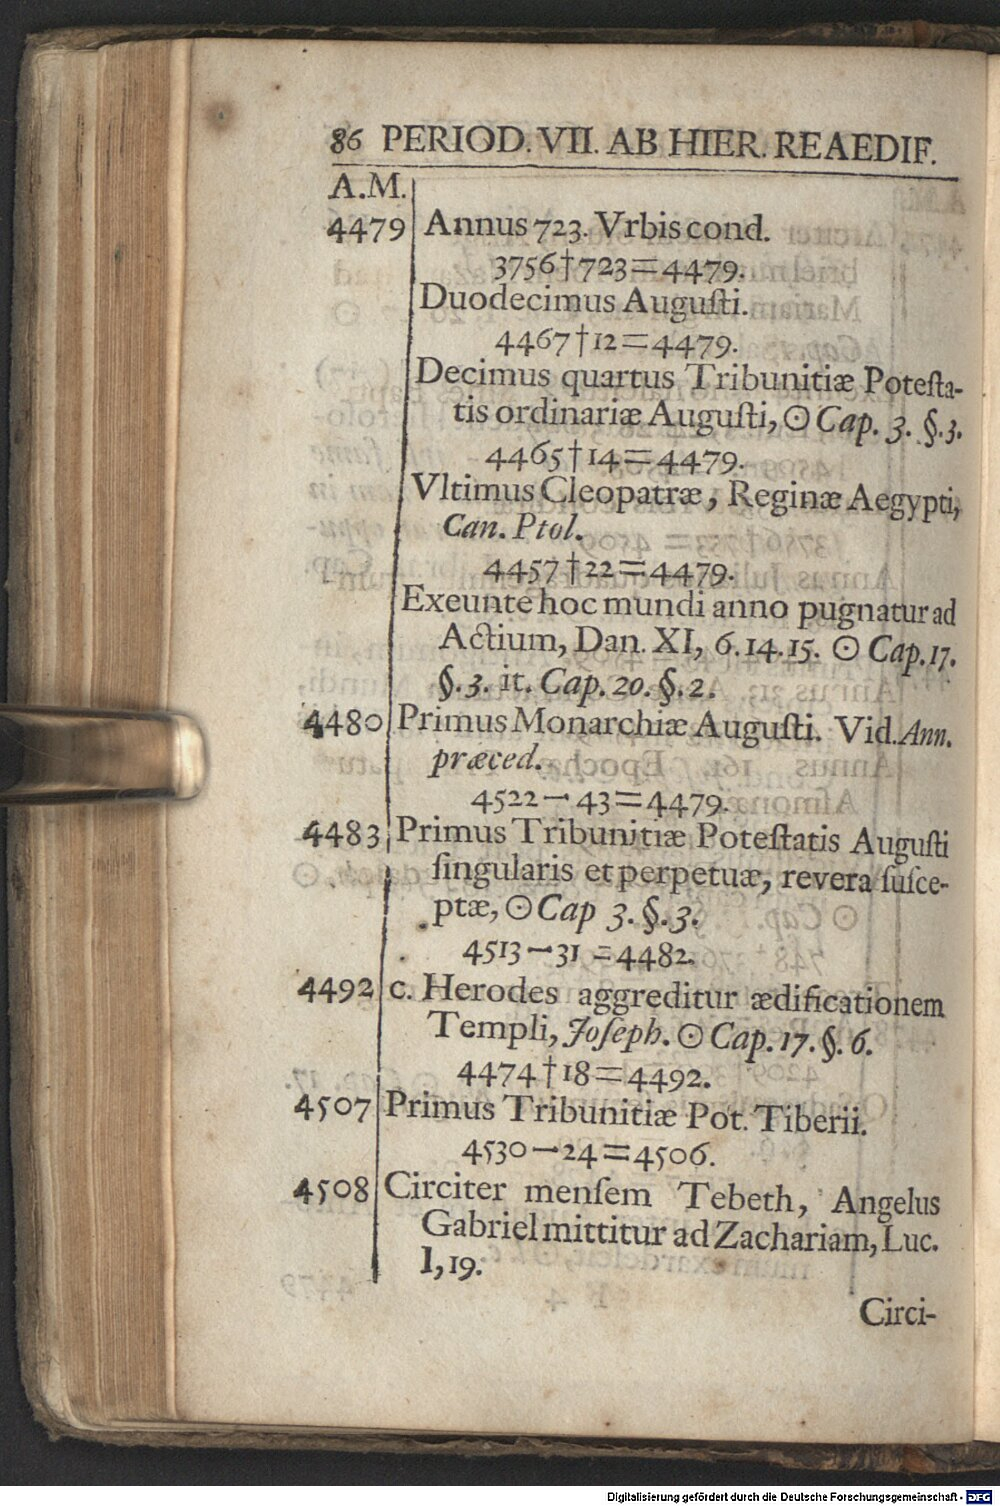 86 PERIOD. VII. AB HIER. REAEDIF.
A.M.
4479 Annus 723. Vrbis cond.
3756†723=4479.
Duodecimus Auguſti.
4467†12=4479.
Decimus quartus Tribunitiæ Poteſta-
tis ordinariæ Auguſti, ☉ Cap. 3. §. 3.
4465†14=4479.
Vltimus Cleopatræ, Reginæ Aegypti,
Can. Ptol.
4457†22=4479.
Exeunte hoc mundi anno pugnatur ad
Actium, Dan. XI, 6. 14. 15. ☉ Cap. 17.
§. 3. it. Cap. 20. §. 2.
4480 Primus Monarchiæ Auguſti. Vid. Ann.
præced.
4522−43=4479.
4483 Primus Tribunitiæ Poteſtatis Auguſti
ſingularis et perpetuæ, revera ſuſce-
ptæ, ☉ Cap 3. §. 3.
4513−31=4482.
4492 c. Herodes aggreditur ædificationem
Templi, Joſeph. ☉ Cap. 17. §. 6.
4474†18=4492.
4507 Primus Tribunitiæ Pot. Tiberii.
4530−24=4506.
4508 Circiter menſem Tebeth, Angelus
Gabriel mittitur ad Zachariam, Luc.
I, 19.
Circi-
Digitalisierung gefördert durch die Deutsche Forschungsgemeinschaft - DFG